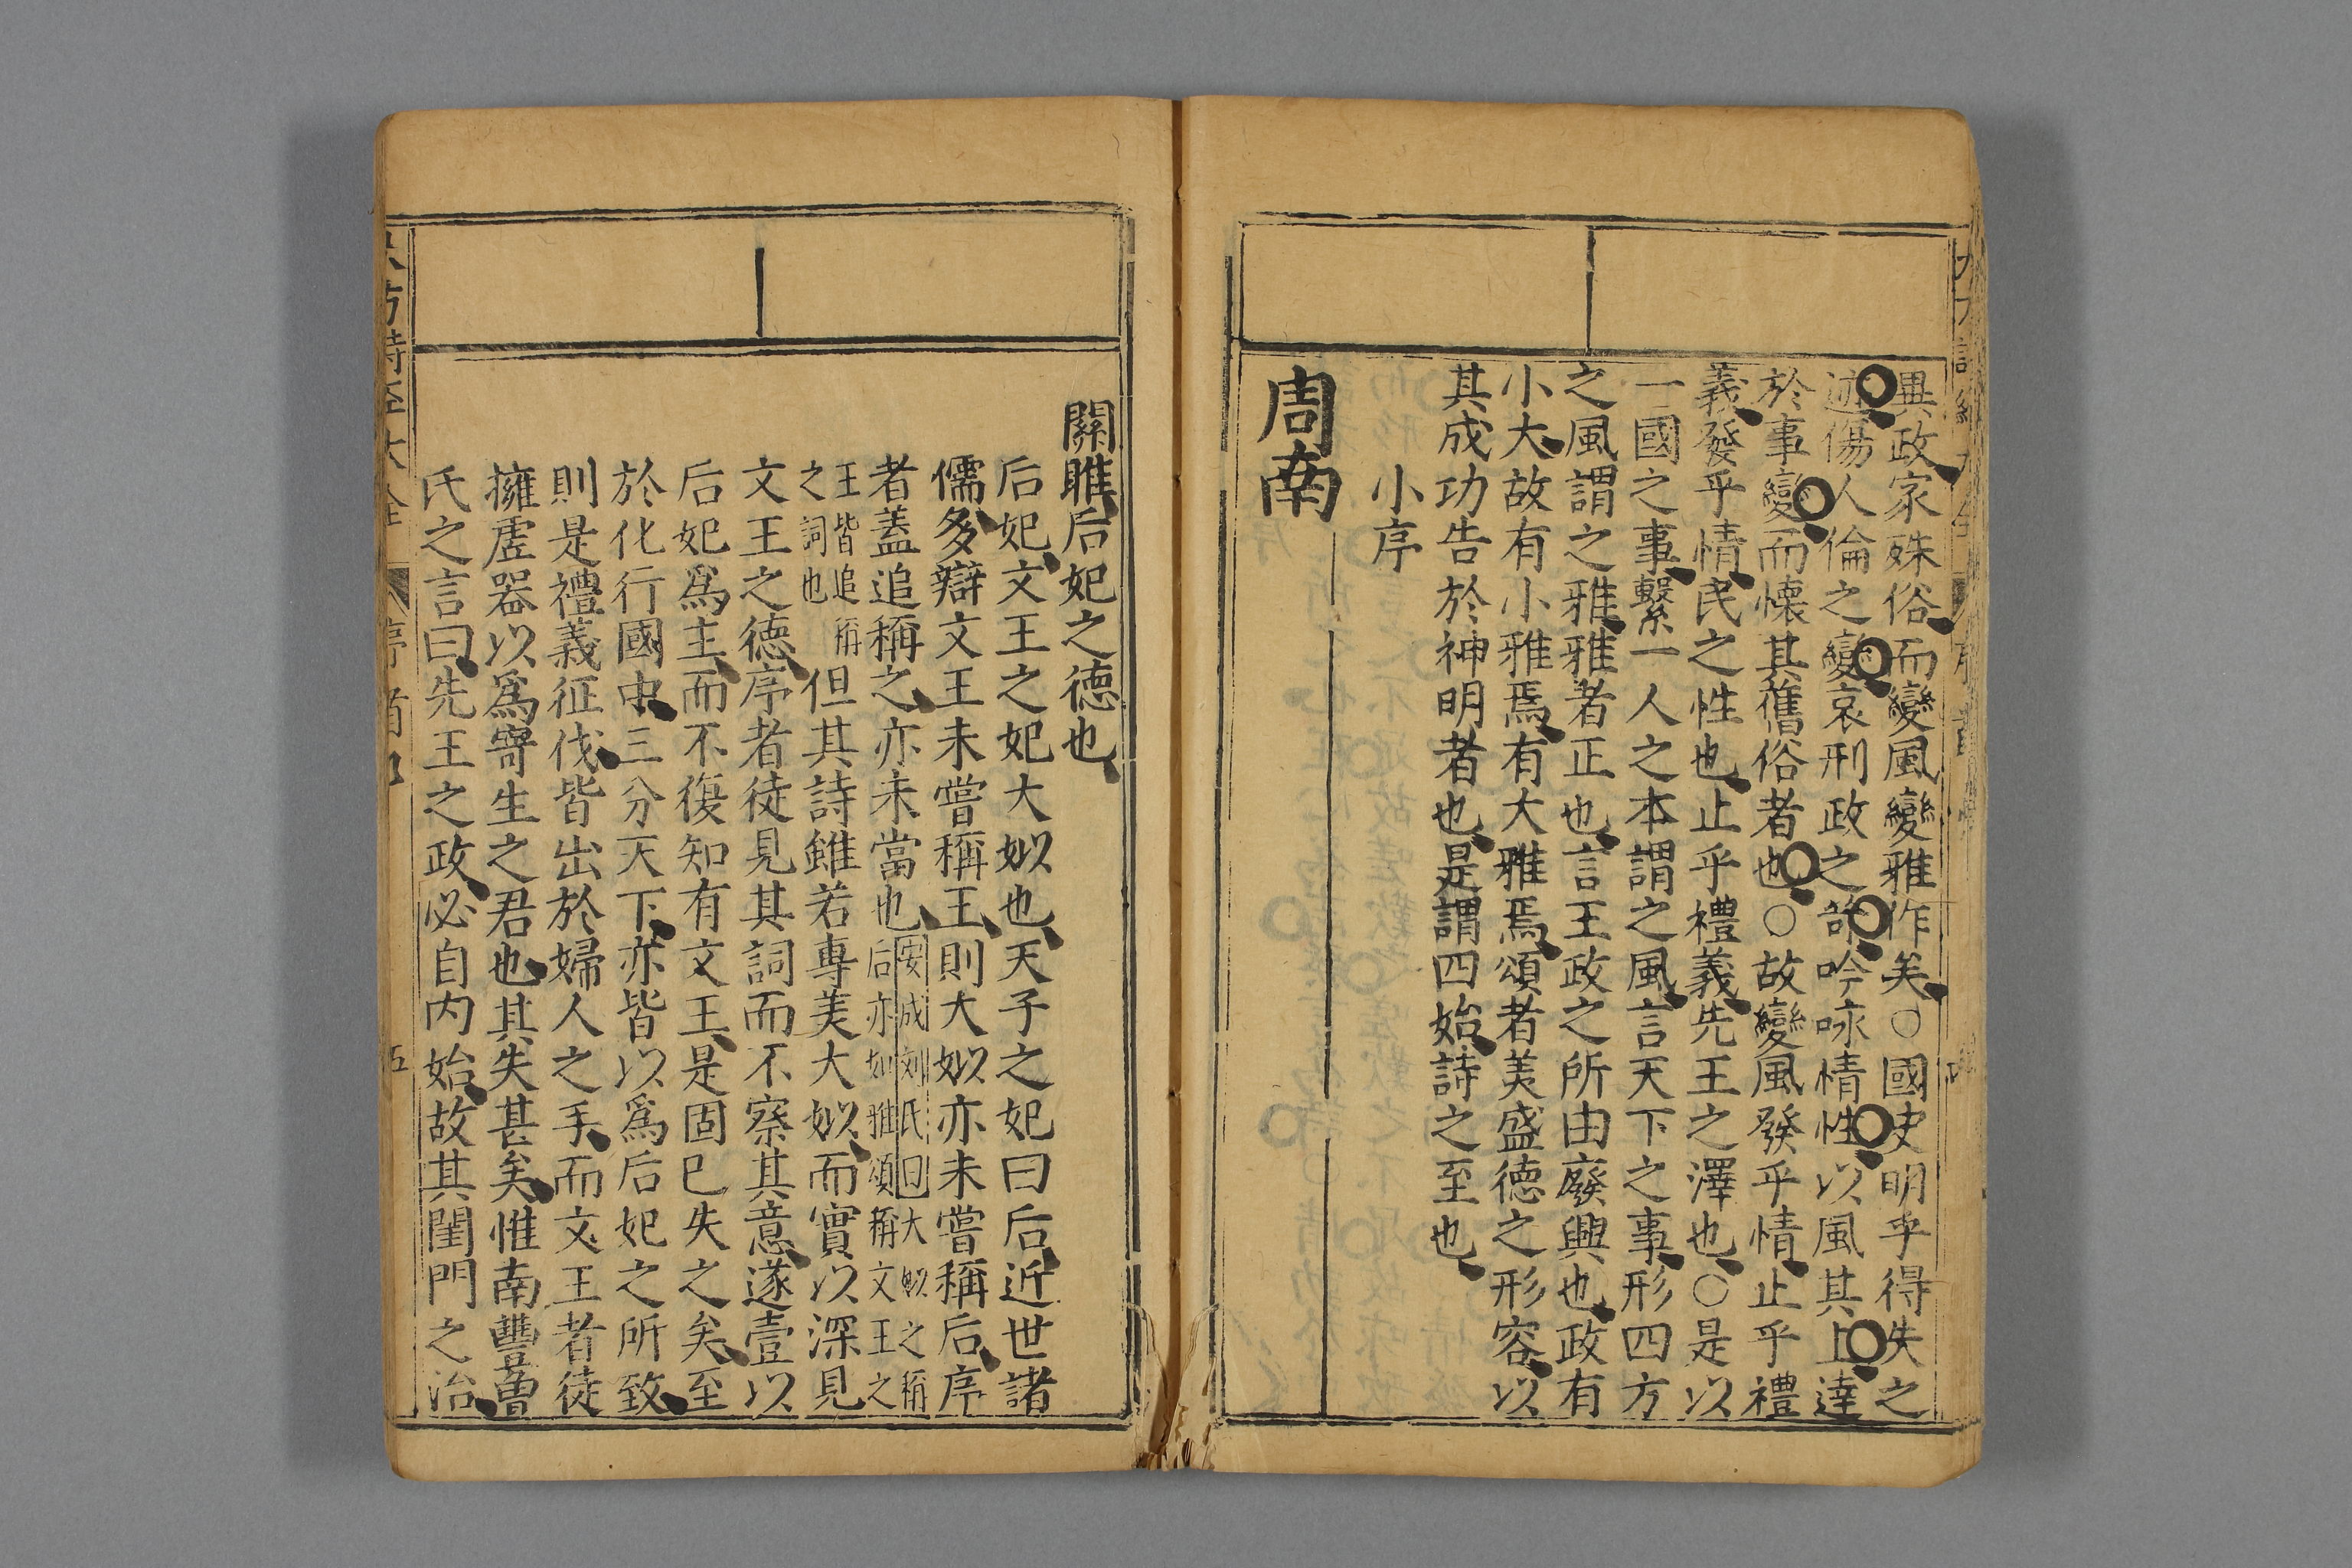 異政家殊俗而變風變雅作矣○國史明乎得失之
迹傷人倫之變哀刑政之苛吟咏情性以風其上達
於事變而懷其舊俗者也○故變風發乎情止乎禮
義發乎情民之性也止乎禮義先王之澤也○是以
一國之事繫一人之本謂之風言天下之事形四方
之風謂之雅雅者正也言王政之所由廢興也政有
小大故有小雅焉有大雅焉頌者美盛德之形容以
其成功告於神明者也是謂四始詩之至也
小序
周南
關雎后妃之德也
后妃文王之妃大姒也天子之妃曰后近世諸
儒多辯文王未嘗稱王則大姒亦未嘗稱后序
者蓋追稱之亦未當也安成刘氏曰大姒之稱后亦如雅頌稱文王之
王皆追稱之詞也但其詩雖若專美大姒而實以深見
文王之德序者徒見其詞而不察其意遂壹以
后妃爲主而不復知有文王是固已失之矣至
於化行國中三分天下亦皆以爲后妃之所致
則是禮義征伐皆出於婦人之手而文王者徒
擁虛器以爲寄生之君也其失甚矣惟南豐曾
氏之言曰先王之政必自内始故其閨門之治
詩經大全 序 五